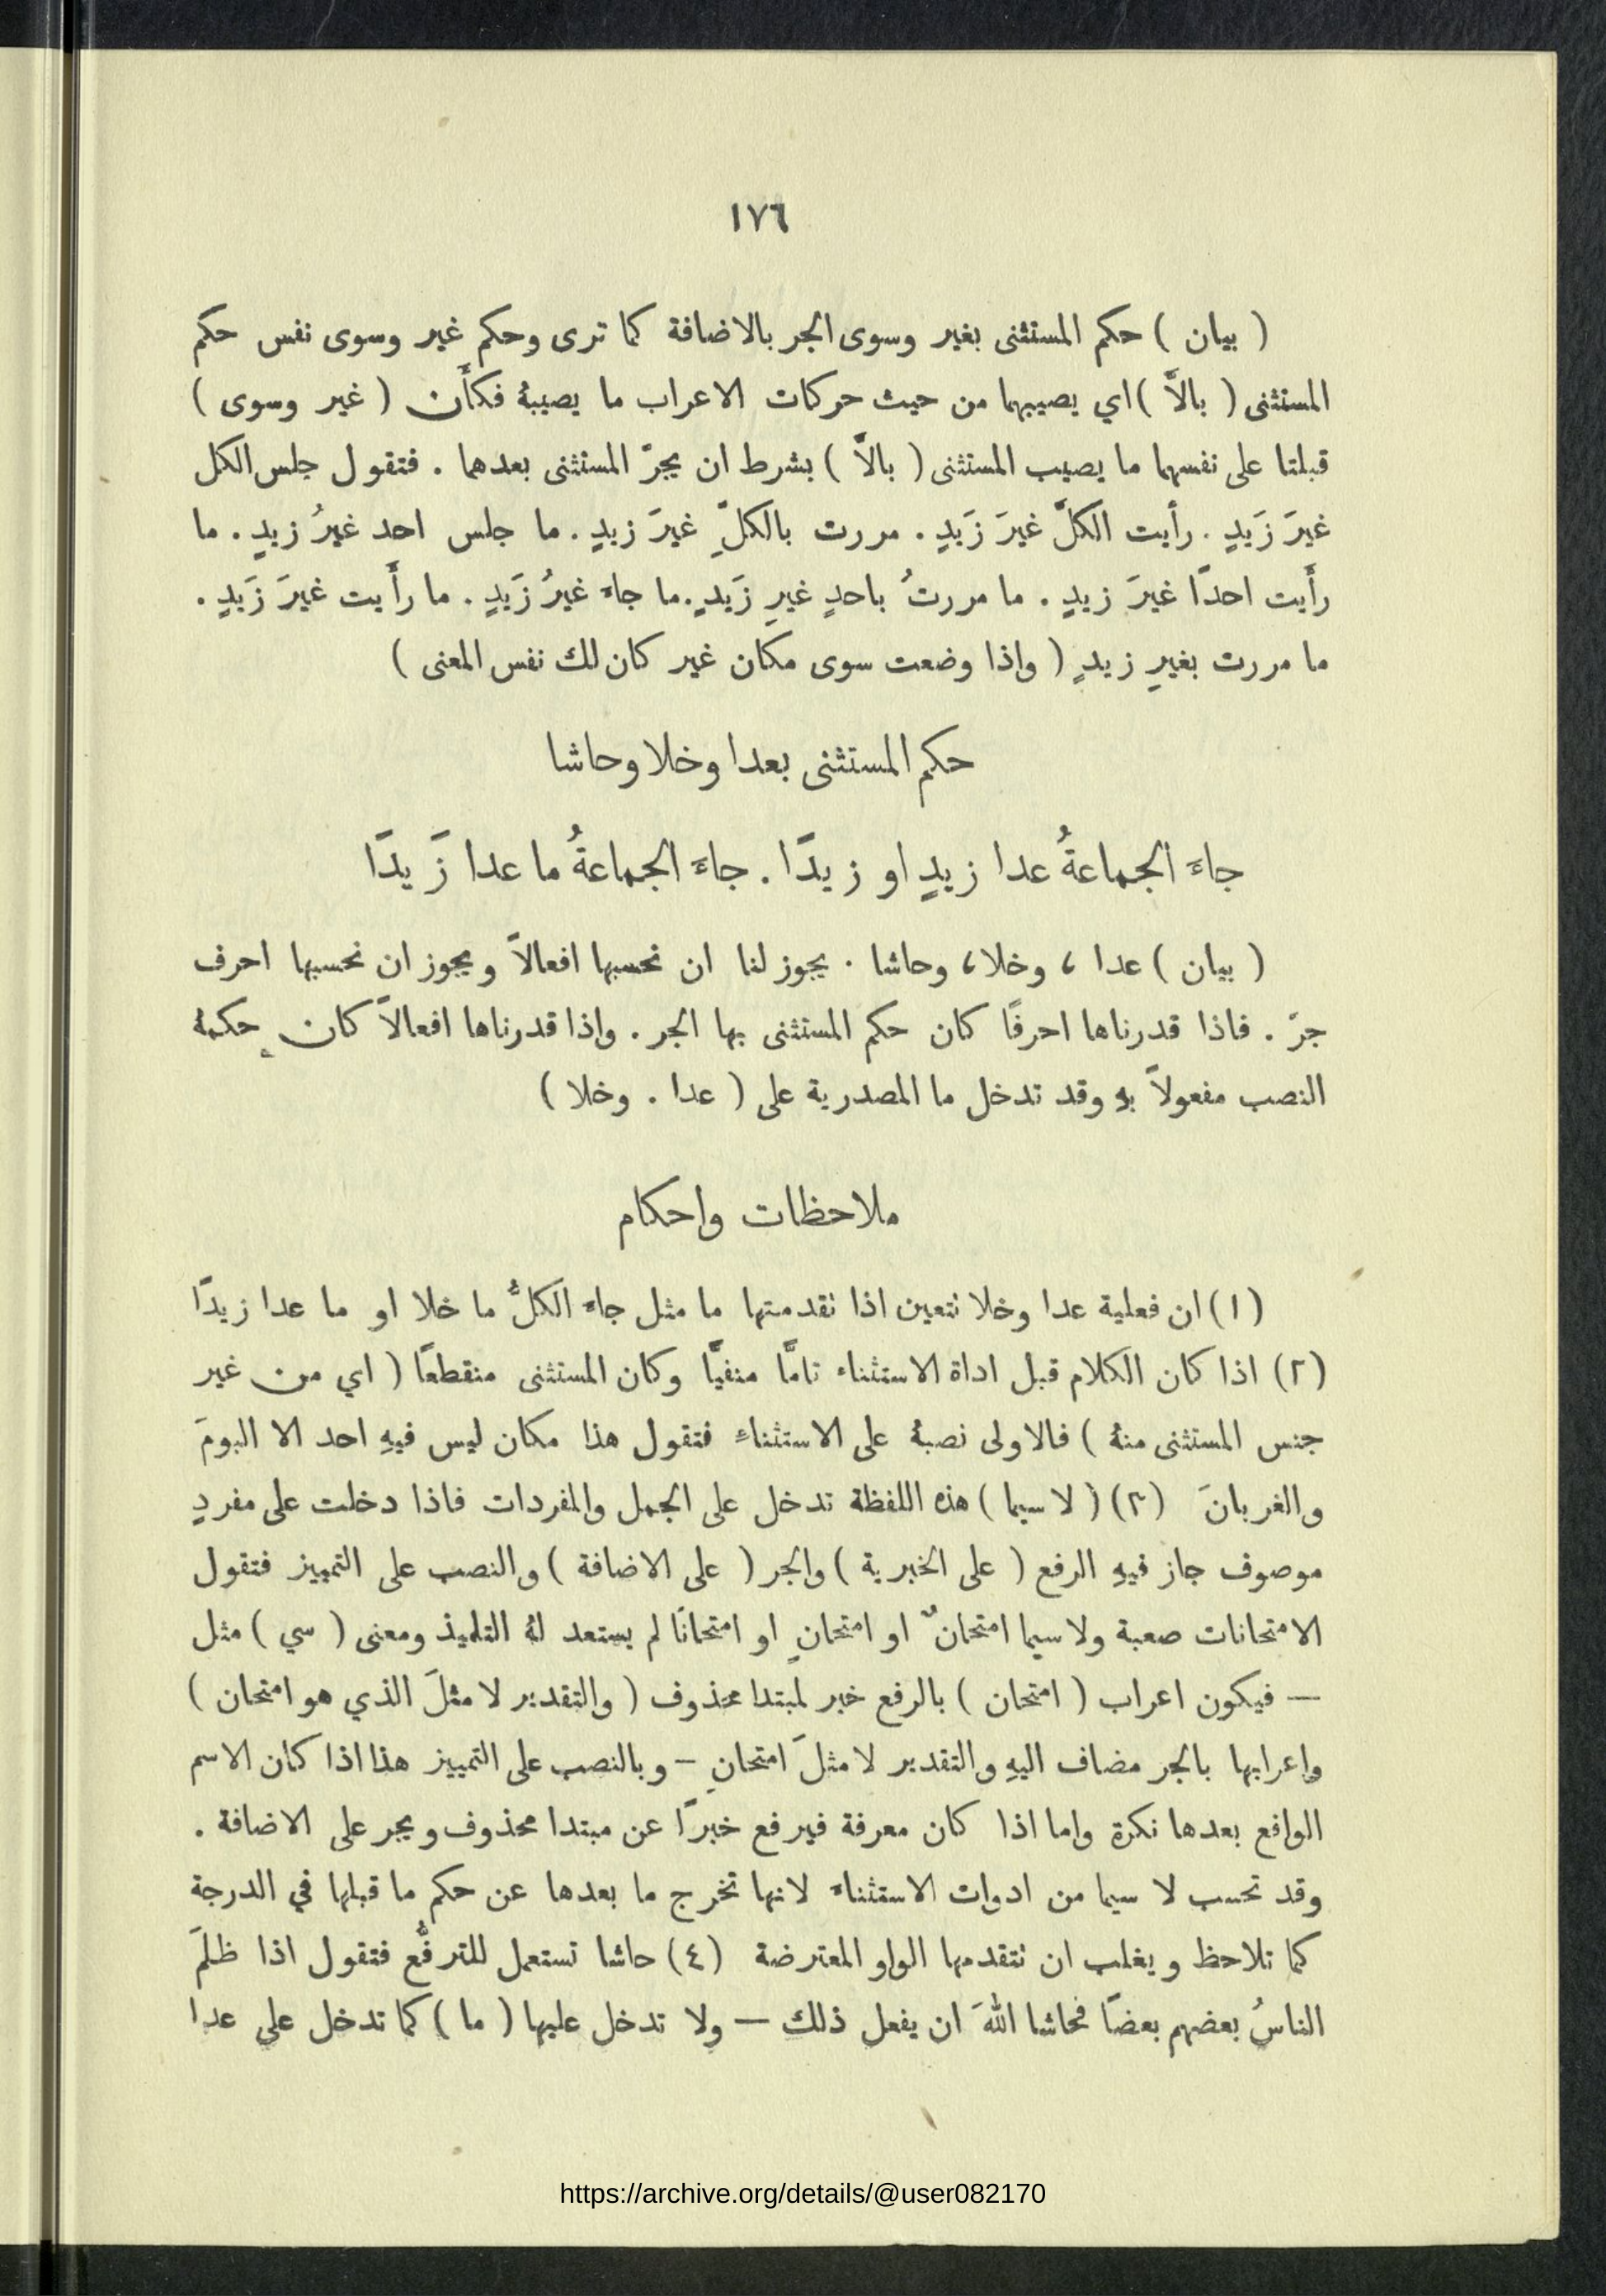 ١٧٦
( بيان ) حكم المستثنى بغير وسوى الجر بالاضافة كما ترى وحكم غير وسوى نفس حكم
المستثنى ( بالاَّ ) اي يصيبهما من حيث حركات الاعراب ما يصيبهُ فكأَن ( غير وسوى )
قبلتا على نفسهما ما يصيب المستثنى ( بالاَّ ) بشرط ان يجرّ المستثنى بعدهما . فتقول جلس الكل
غيرَ زَيدٍ . رأيت الكلَّ غيرَ زَيدٍ . مررت بالكلِّ غيرَ زيدٍ . ما جلس احد غيرُ زيدٍ . ما
رأَيت احدًا غيرَ زيدٍ . ما مررتُ باحدٍ غيرِ زَيدٍ . ما جاءَ غيرُ زَيدٍ . ما رأَيت غيرَ زَيدٍ .
ما مررت بغيرِ زيدٍ ( واذا وضعت سوى مكان غير كان لك نفس المعنى )
حكم المستثنى بعدا وخلا وحاشا
جاءَ الجماعةُ عدا زيدٍ او زيدًا . جاءَ الجماعةُ ما عدا زَيدًا
( بيان ) عدا ، وخلا ، وحاشا . يجوز لنا ان نحسبها افعالاً ويجوز ان نحسبها احرف
جرّ . فاذا قدرناها احرفًا كان حكم المستثنى بها الجر . واذا قدرناها افعالاً كان حكمهُ
النصب مفعولاً بهِ وقد تدخل ما المصدرية على ( عدا . وخلا )
ملاحظات واحكام
(١) ان فعلية عدا وخلا تتعين اذا تقدمتها ما مثل جاءَ الكلُّ ما خلا او ما عدا زيدًا
(٢) اذا كان الكلام قبل اداة الاستثناء تامًّا منفيًّا وكان المستثنى منقطعًا ( اي من غير
جنس المستثنى منهُ ) فالاولى نصبهُ على الاستثناءِ فتقول هذا مكان ليس فيهِ احد الا البومَ
والغربانَ (٣) ( لا سيما ) هذه اللفظة تدخل على الجمل والمفردات فاذا دخلت على مفردٍ
موصوف جاز فيهِ الرفع ( على الخبرية ) والجر ( على الاضافة ) والنصب على التمييز فتقول
الامتحانات صعبة ولا سيما امتحانٌ او امتحانٍ او امتحانًا لم يستعد لهُ التلميذ ومعنى ( سي ) مثل
— فيكون اعراب ( امتحان ) بالرفع خبر لمبتدا محذوف ( والتقدير لا مثلَ الذي هو امتحان )
واعرابها بالجر مضاف اليهِ والتقدير لا مثلَ امتحانٍ – وبالنصب على التمييز هذا اذا كان الاسم
الواقع بعدها نكرة واما اذا كان معرفة فيرفع خبرًا عن مبتدا محذوف ويجر على الاضافة .
وقد تحسب لا سيما من ادوات الاستثناءَ لانها تخرج ما بعدها عن حكم ما قبلها في الدرجة
كما تلاحظ ويغلب ان تتقدمها الواو المعترضة (٤) حاشا تستعمل للترفُّع فتقول اذا ظلمَ
الناسُ بعضهم بعضًا فحاشا اللهَ ان يفعل ذلك — ولا تدخل عليها ( ما ) كما تدخل على عدا
https://archive.org/details/@user082170